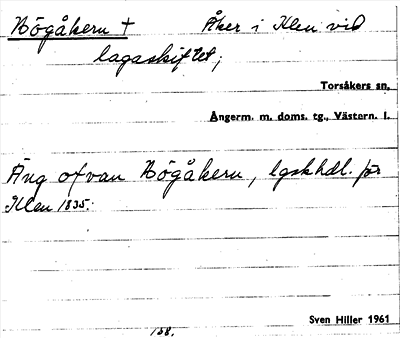 Högåkern † Åker i Klen vid
lagaskiftet;
Torsåkers sn,
Ångerm. m. doms. tg., Västern. l.
Äng ofvan Högåkern, lgskhdl. för
Klen 1835.
Sven Hiller 1961
158.